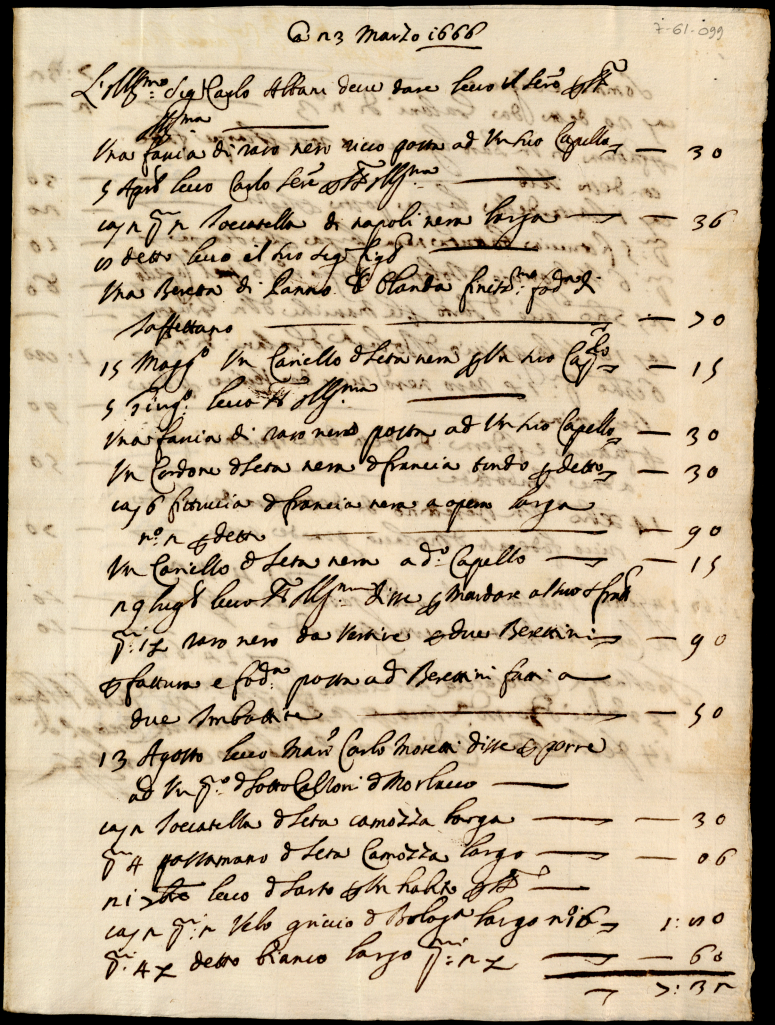 A 23 Marzo 1666
7-61-099
L'Ill.mo Sig Carlo Albani deve dare
Ill.ma
Una fascia di raso nero riccio posta ad Un suo Capello — 30
5 Apr.e Carlo
can 2 p.mi 2 Toccatella di napoli nera larga — 36
detto il suo Sig.
Una Beretta di Panno d Olanda fod.a di
Taffettano — 70
15 Magg.o Un Cariello d seta nera p Un suo Cap.lo — 15
5 Giug.o Ill.ma
Una fascia di raso nero posta ad Un suo Capello — 30
Un Cordone d seta nera d francia tondo p detto — 30
can 6 fittuccia d francia nera a opera larga
n.o 2 p detto — 90
Un Cariello d seta nera a d.o Capello — 15
29 lug.o Ill.mo disse p Mandare al suo
raso nero da Vestire p due Berettini — 90
p fattura e fod.a posta ad Berettini fatti a
due Imbottite — 50
13 Agosto Carlo Moretti disse p porre
ad Un p.o d sotto Calzoni d Morlacco
can 2 Toccatella d seta camozza larga — 30
p.mi 4 passamano d seta Camozza largo — 06
21 d sarto p Un habito p
can 2 p.mi 2 Velo griccio d Bologn largo n.o 16 — 1:20
detto bianco largo — 60
7:32